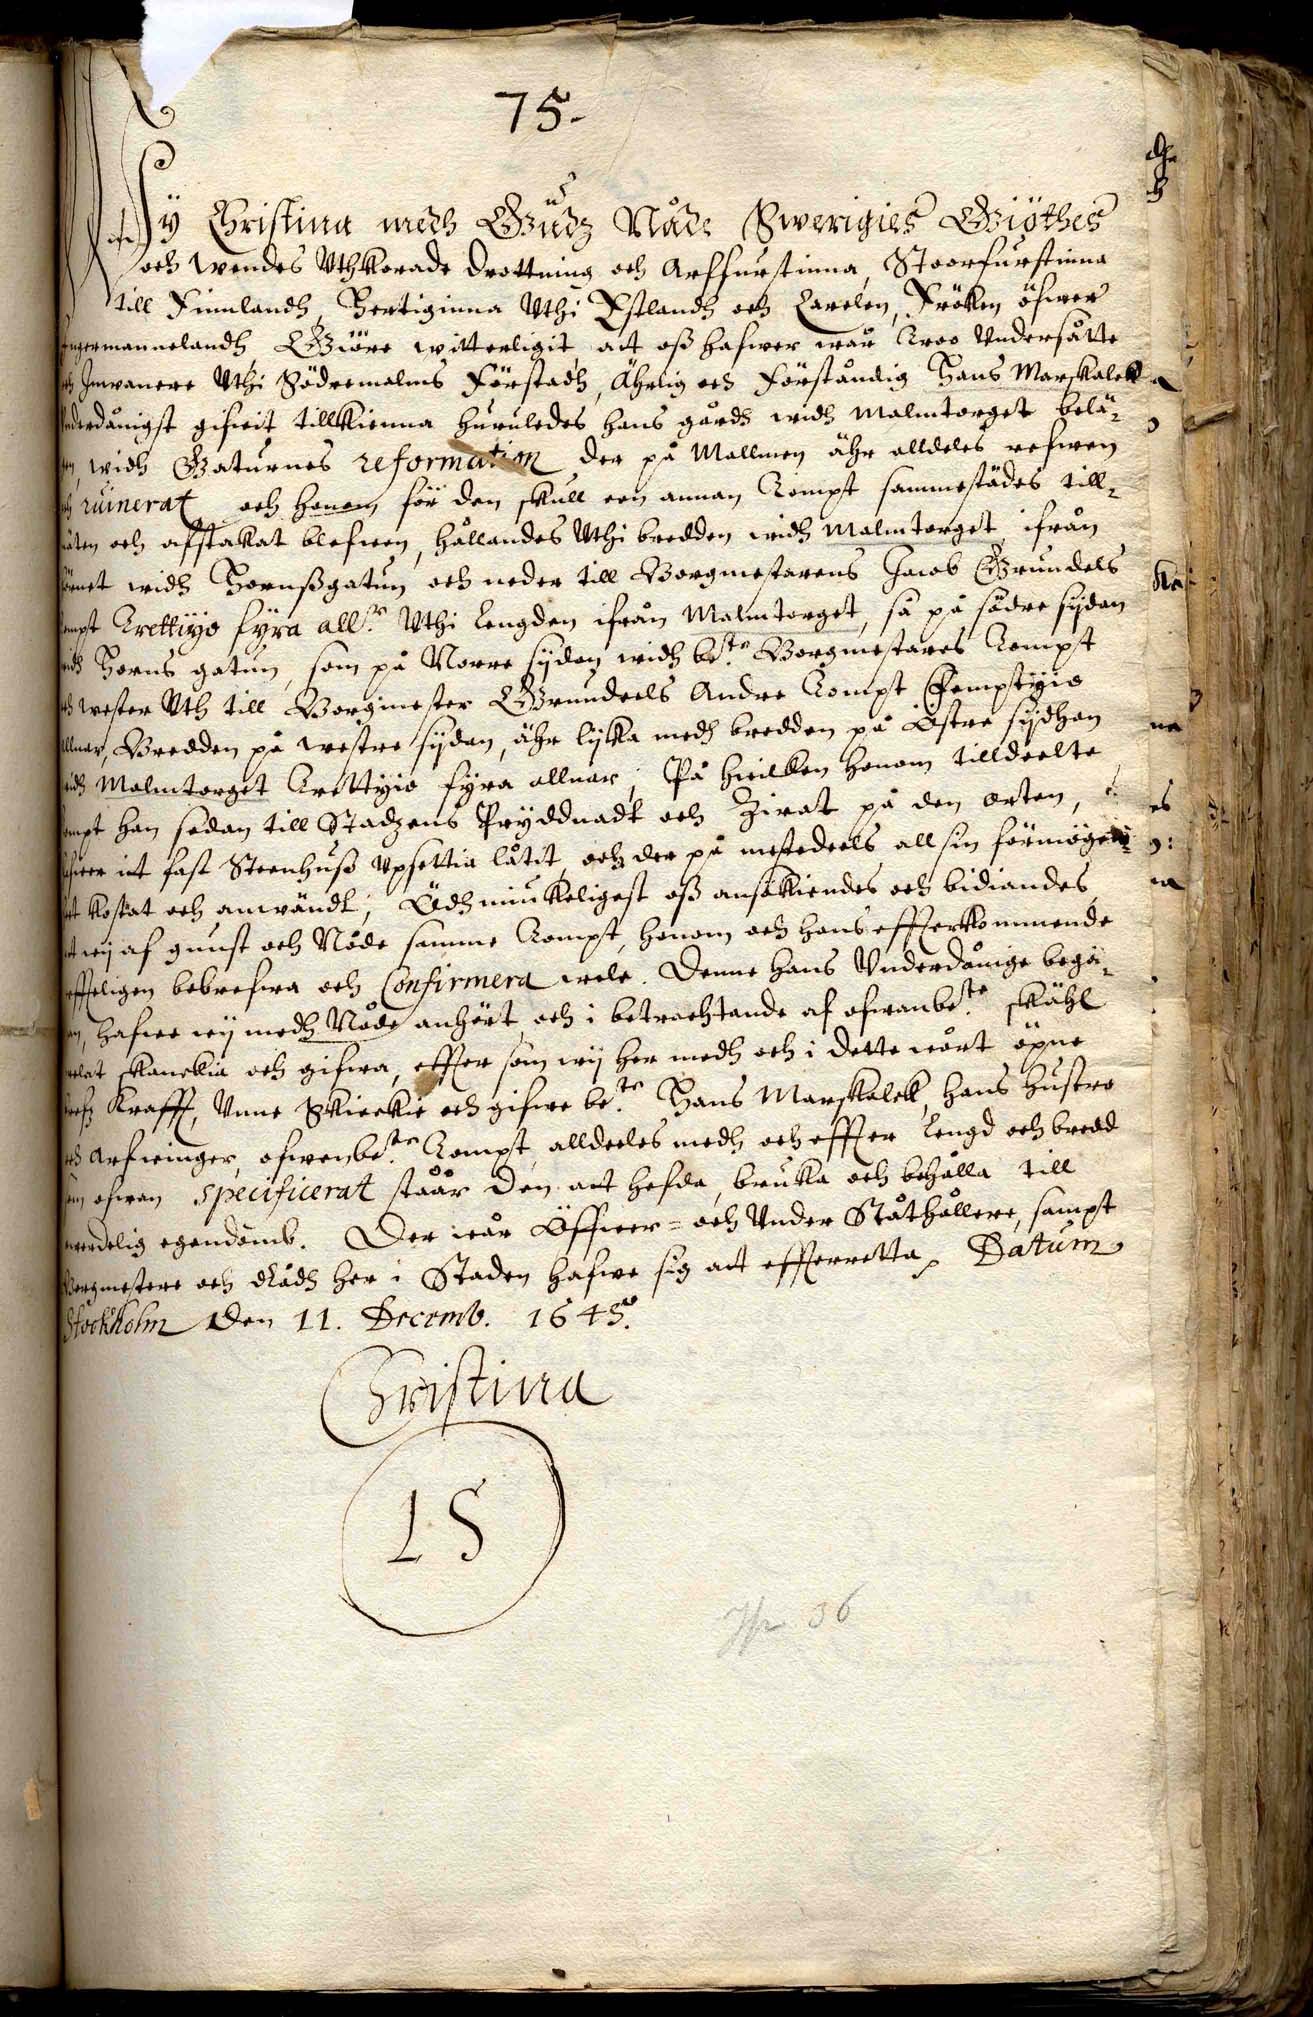 75.
Wÿ Christina medh Gudz Nåde Swerigies Giöthes
och Wendes Uthkorade Drottning och Arffurstinna, Stoorfurstinna
till Finnlandh, Hertiginna Uthi Estlandh och Carelen, Fröken öfwer
Ingermannelandh, Giöre witterligit, att oß hafwer wår troo Undersåtte
och Inwånere Uthi Södremalms Förstadh, Ährlig och Förståndig Hans Marskalck
Underdånigst gifwit tillkienna huruledes hans gårdh widh Malmtorget belä-
gen, widh Gaturnes reformation der på Mallmen ähr alldeles refwen
och ruinerat, och honom för den skull een annan Tompt sammestädes till-
mäten och affstakat blefwen, hållandes Uthi bredden widh Malmtorget, ifrån
hörnet widh Hornßgatun och neder till Borgmestarens Jacob Grundels
Tompt Trettijo fyra allnar. Uthi Lengden ifrån Malmtorget, så på södre sydan
widh Horns gatun, som på Norre sydan widh be:te Borgmestares Tompt
och wester Uth till Borgmester Grundeels Andre Tompt Femptijo
allnar, Bredden på westre sydan, ähr lyka medh bredden på Östre sydhan
widh Malmtorget Trettyio fyra allnar; På hwilken honom tilldeelte
Tompt han sedan till Stadzens Pryddnadt och Zirat på den orten,
hafwer itt fast Steenhuss Upsettia låtit, och der på mestedeels all sin förmögen-
het kostat och anwändt; Ödhmiukeligest oß ansökiendes och bidiandes,
att wij af gunst och Nåde samme Tompt, honom och hans effterkommende
krafftteligen bebrefwa och Confirmera wele. Denne hans Underdånige begä-
ran, hafwe wij medh Nåde anhört, och i betrachtande af ofwanbe:te skähl
welat skänckia och gifwa, effter som wij her medh och i dette wårt öpne
brefz Krafft, Unne Skienkie och gifwe be:te Hans Marskalck, hans hustro
och Arfwinger, ofwenbe:te Tompt, alldeeles medh och effter Lengd och bredd
som ofwan specificerat står den att hefda, bruka och behålla till
ewerdelig egendomb. Der wår Öffwer= och Under Ståthållere, sampt
Borgmestere och Rådh her i Staden hafwe sig att effterretta. Datum
Stockholm Den 11. Decemb. 1645.
Christina
LS
Jfr 36